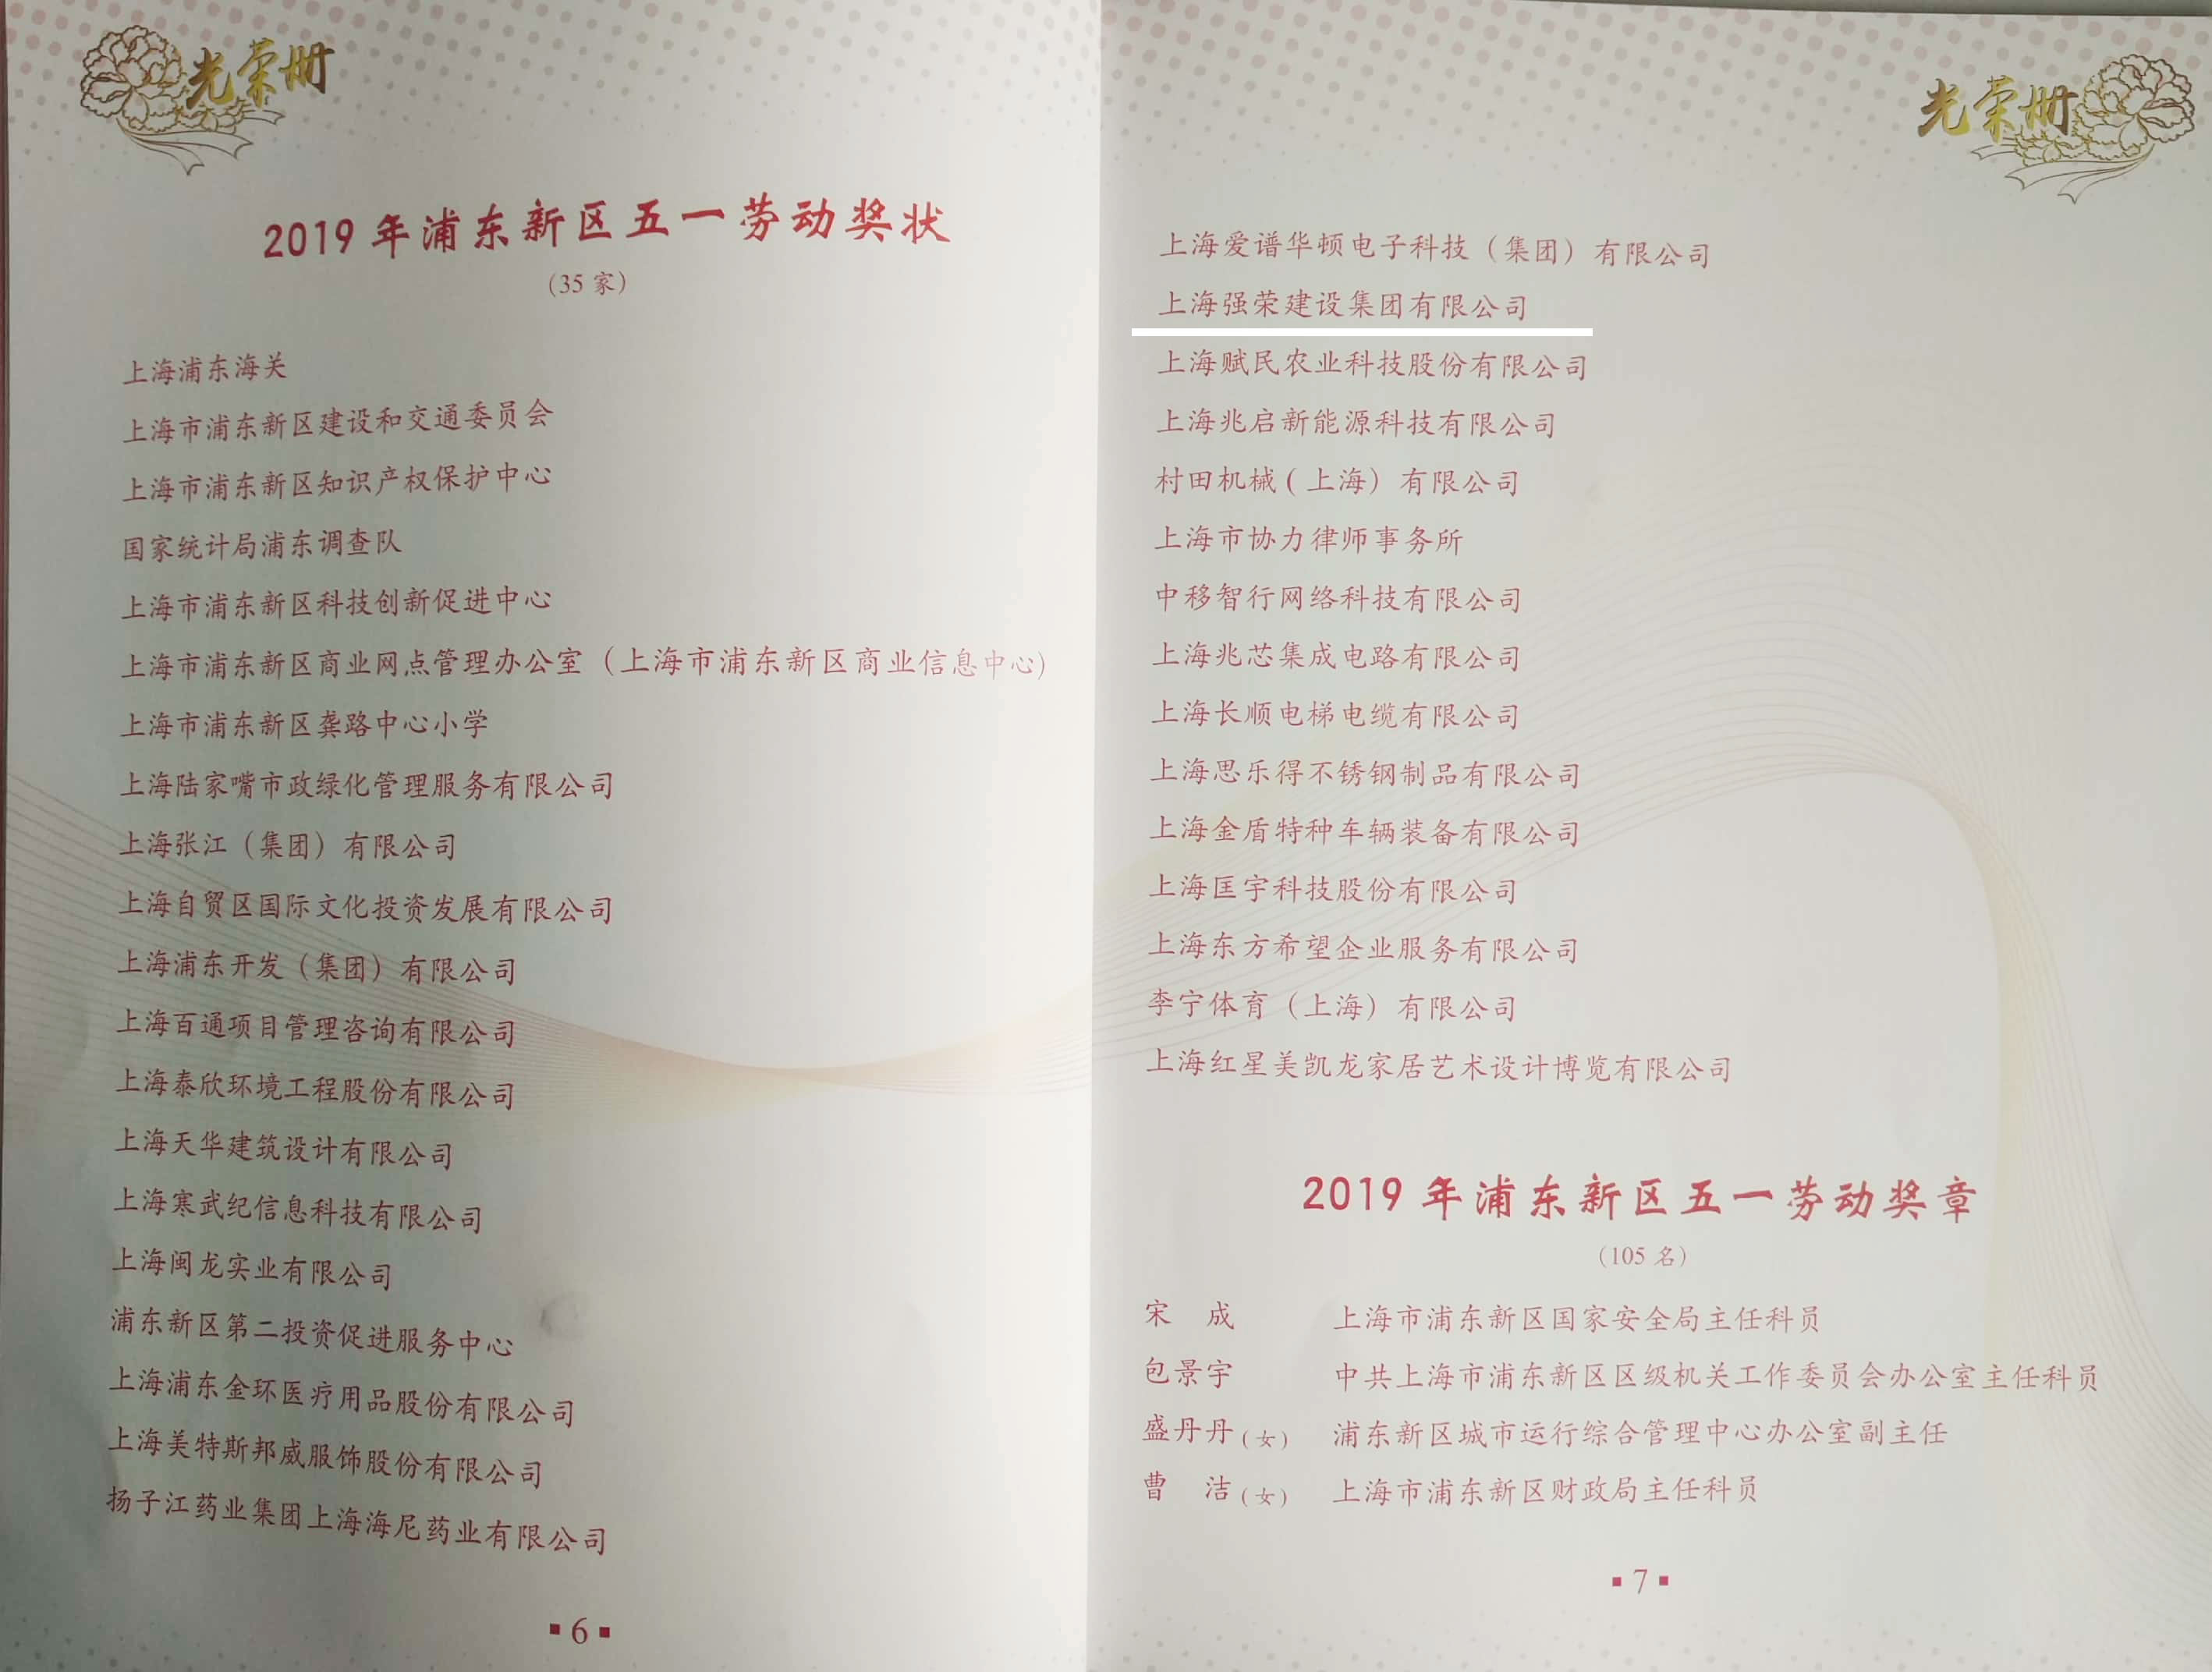 光荣册
2019年浦东新区五一劳动奖状
(35 家)
上海浦东海关
上海市浦东新区建设和交通委员会
上海市浦东新区知识产权保护中心
国家统计局浦东调查队
上海市浦东新区科技创新促进中心
上海市浦东新区商业网点管理办公室（上海市浦东新区商业信息中心）
上海市浦东新区龚路中心小学
上海陆家嘴市政绿化管理服务有限公司
上海张江（集团）有限公司
上海自贸区国际文化投资发展有限公司
上海浦东开发（集团）有限公司
上海百通项目管理咨询有限公司
上海泰欣环境工程股份有限公司
上海天华建筑设计有限公司
上海寒武纪信息科技有限公司
上海闽龙实业有限公司
浦东新区第二投资促进服务中心
上海浦东金环医疗用品股份有限公司
上海美特斯邦威服饰股份有限公司
扬子江药业集团上海海尼药业有限公司
▪ 6 ▪
光荣册
上海爱谱华顿电子科技（集团）有限公司
上海强荣建设集团有限公司
上海赋民农业科技股份有限公司
上海兆启新能源科技有限公司
村田机械(上海）有限公司
上海市协力律师事务所
中移智行网络科技有限公司
上海兆芯集成电路有限公司
上海长顺电梯电缆有限公司
上海思乐得不锈钢制品有限公司
上海金盾特种车辆装备有限公司
上海匡宇科技股份有限公司
上海东方希望企业服务有限公司
李宁体育（上海）有限公司
上海红星美凯龙家居艺术设计博览有限公司
2019年浦东新区五一劳动奖章
(105 名)
宋　成　上海市浦东新区国家安全局主任科员
包景宇　中共上海市浦东新区区级机关工作委员会办公室主任科员
盛丹丹(女)　浦东新区城市运行综合管理中心办公室副主任
曹　洁(女)　上海市浦东新区财政局主任科员
▪ 7 ▪